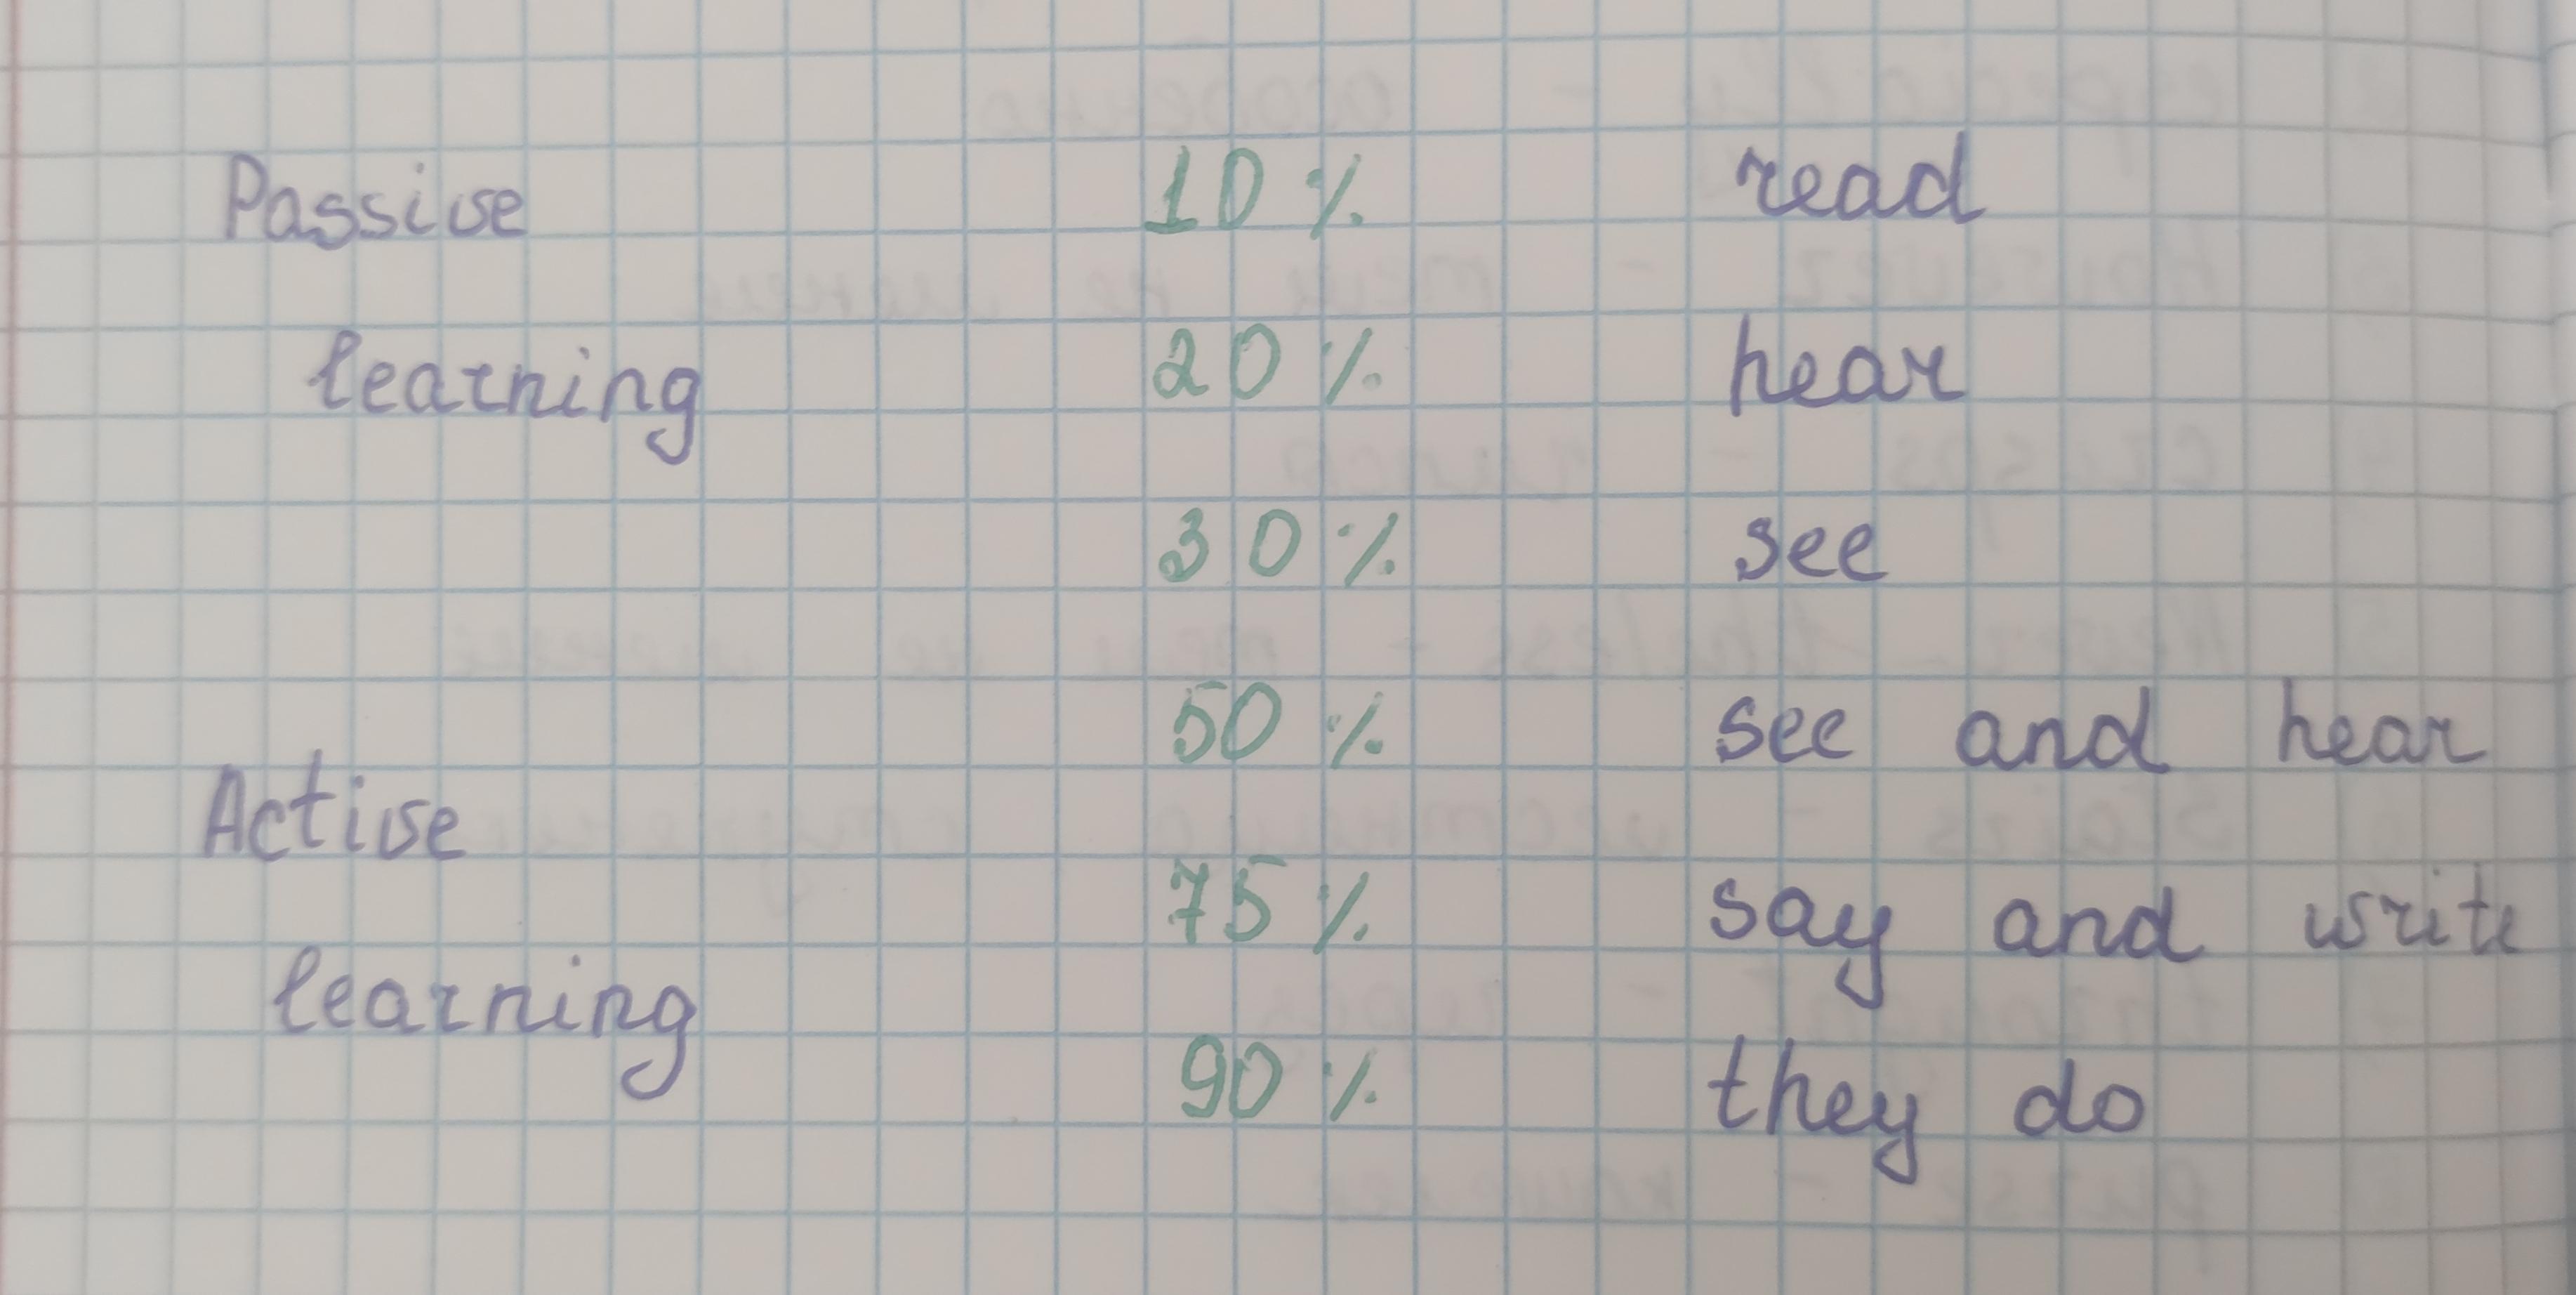 Passive 10% read
learning 20% hear
30% see
50% see and hear
Active
75% say and write
learning
90% they do